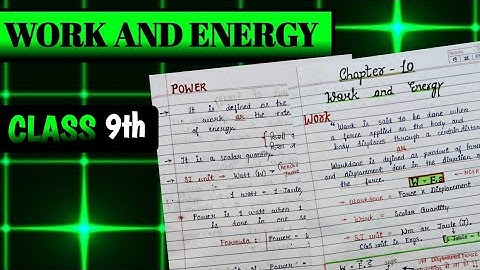 WORK AND ENERGY
CLASS 9th
POWER
→ It is defined as the
work or the rate
of energy.
→ It is a scalar quantity.
→ SI unit → Watt (W)
1 watt = 1 Joule
Power is 1 watt when 1
is done in one
Formula : Power =
Chapter - 10
Work and Energy
Work
"Work is said to be done when
a force applied on the body and
body displaces through a certain distance
or
Workdone is defined as product of force
and displacement done in the direction of
the force. W = F.s
→ Workdone = Force x Displacement
→ Work = Scalar Quantity
→ SI unit = Nm or Joule (J).
CGS unit is Ergs.
W = F.s